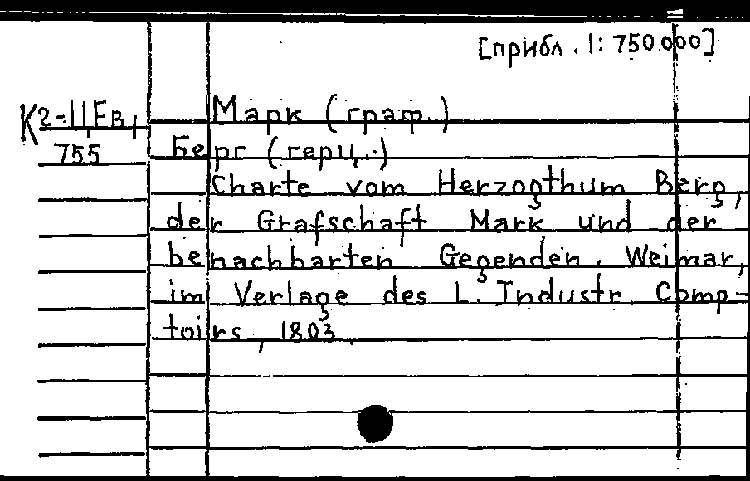 [прибл. 1: 750.000]
К2-IIЕв,
755
Марк (граф.)
Берг (герц.)
Charte vom Herzogthum Berg,
der Grafschaft Mark und der
benachbarten Gegenden. Weimar,
im Verlage des L. Industr. Comp-
toirs, 1803.